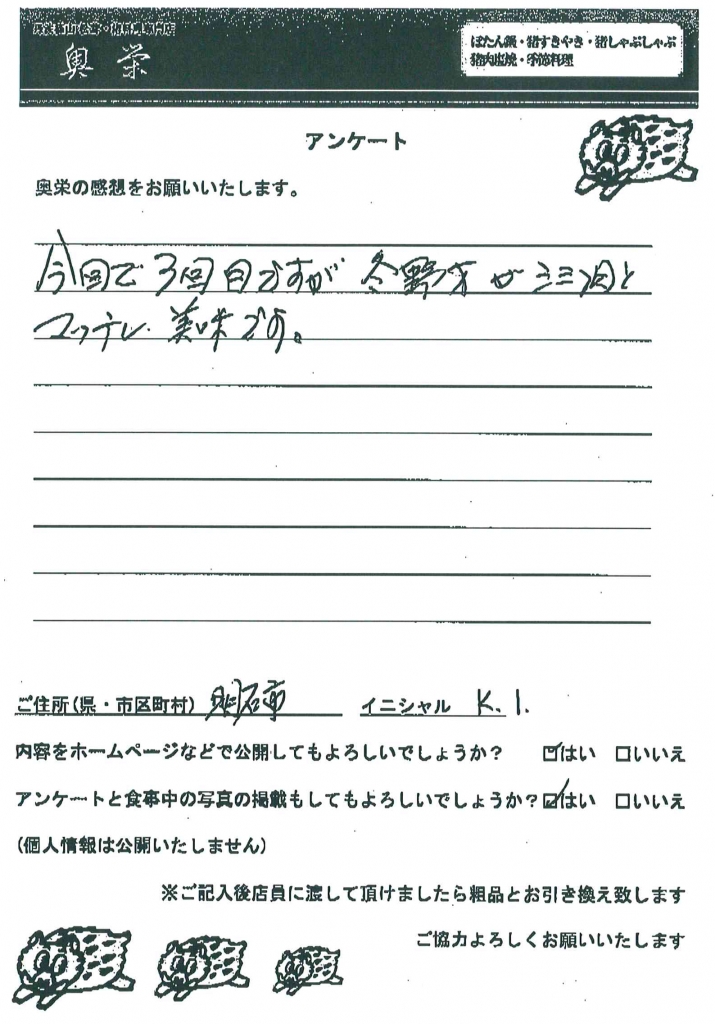 奥栄
ぼたん鍋・猪すきやき・猪しゃぶしゃぶ
猪肉塩焼・季節料理
アンケート
奥栄の感想をお願いいたします。
今回で3回目ですが 冬野才が ミミ泪と
マッテレ 美味です。
ご住所(県・市区町村) 明石市 イニシャル K.I.
内容をホームページなどで公開してもよろしいでしょうか? ☑はい □いいえ
アンケートと食事中の写真の掲載もしてもよろしいでしょうか?☑はい □いいえ
(個人情報は公開いたしません)
※ご記入後店員に渡して頂けましたら粗品とお引き換え致します
ご協力よろしくお願いいたします